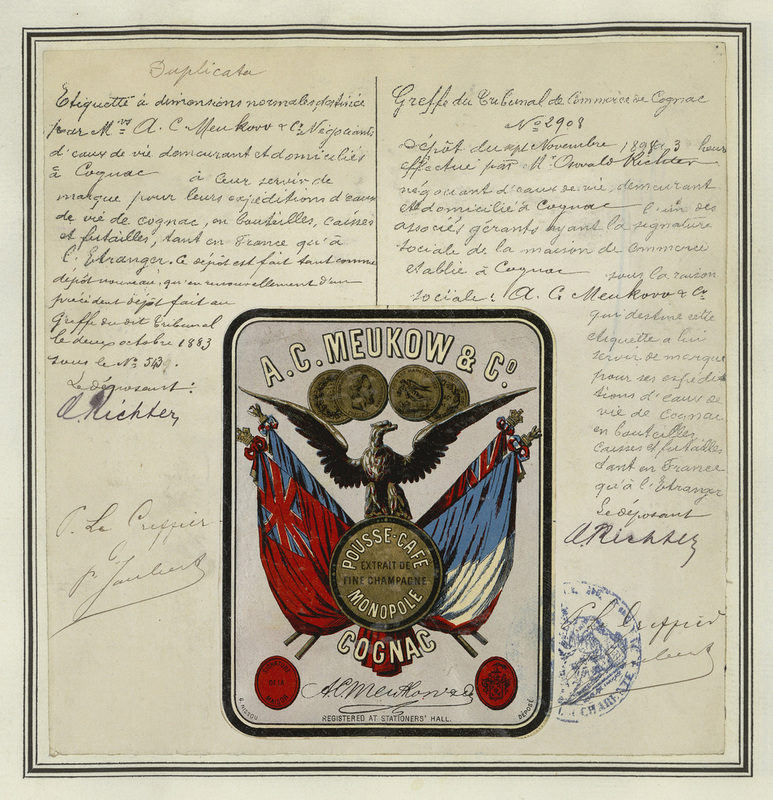 Duplicata
Etiquette à dimensions normales, destinée
par Mrs A. C. Meukow & Co Négociants
d'eaux de vie demeurant et domiciliés
à Cognac à leur servir de
marque pour leurs expéditions d'eaux
de vie de cognac, en bouteilles, caisses
et futailles, tant en France qu'à
l'Etranger. Ce dépôt est fait tant comme
dépôt nouveau, qu'en renouvellement d'un
précédent dépôt fait au
Greffe du dit Tribunal
le deux octobre 1883
sous le No 543.
Le déposant:
O. Richter
P. Le Greffier
Joubert
Greffe du Tribunal de Commerce de Cognac
No 2908
Dépôt du sept Novembre 1898 à 3 heures
effectué par Mr Oswald Richter
négociant d'eaux de vie, demeurant
et domicilié à Cognac l'un des
associés gérants ayant la signature
sociale de la maison de commerce
établie à Cognac sous la raison
sociale: A. C. Meukow & Co
qui destine cette
étiquette à lui
servir de marque
pour ses expédi
tions d'eaux de
vie de Cognac
en bouteilles,
caisses et futailles
tant en France
qu'à l'Etranger
Le déposant
O. Richter
P. Le Greffier
Joubert
A.C. MEUKOW & Co
POUSSE-CAFE
EXTRAIT DE
FINE CHAMPAGNE
MONOPOLE
COGNAC
DE LA
A.C. Meukow & Co
REGISTERED AT STATIONERS' HALL.
DÉPOSÉ
CHARENTE